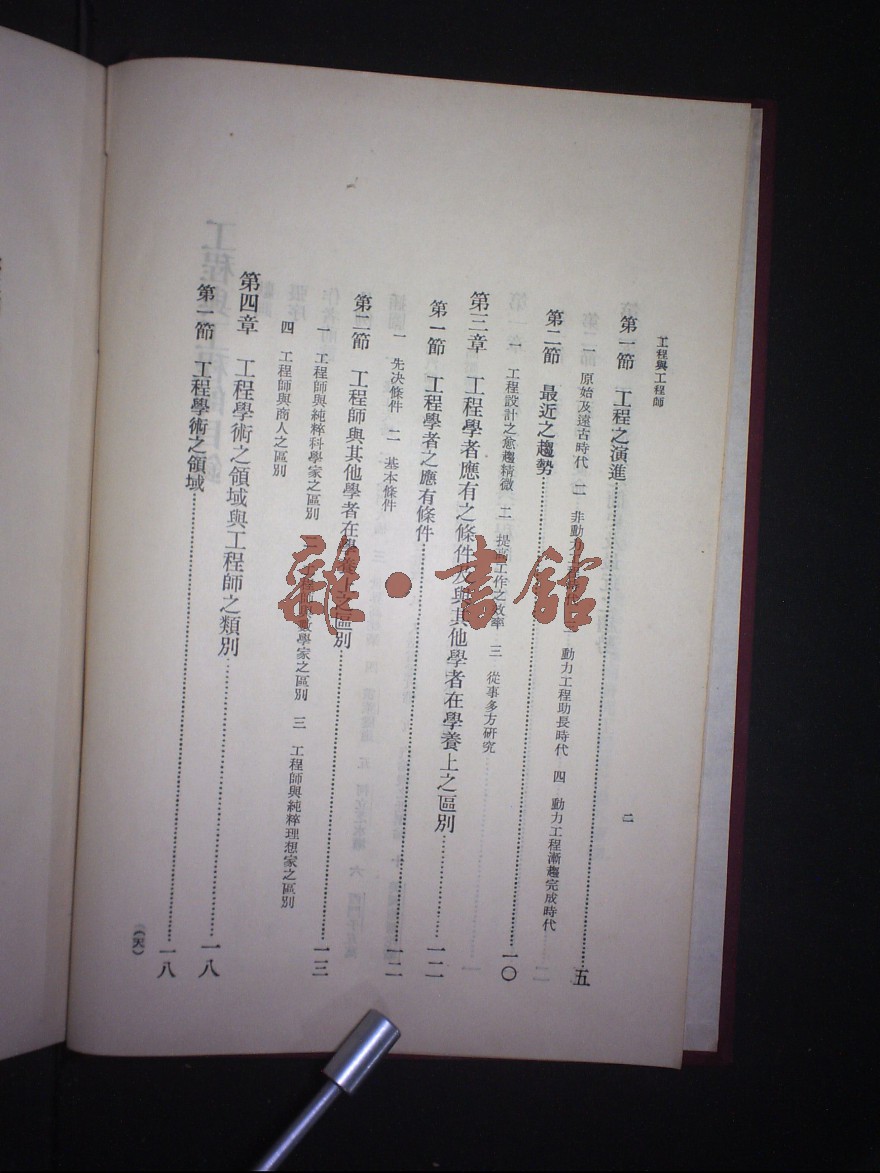 工程與工程師
二
第一節 工程之演進 五
一 原始及遠古時代 二 非動力工程時代 三 動力工程助長時代 四 動力工程漸趨完成時代
第二節 最近之趨勢 一〇
一 工程設計之愈趨精微 二 提高工作之效率 三 從事多方研究
第三章 工程學者應有之條件及與其他學者在學養上之區別 一二
第一節 工程學者之應有條件 一二
一 先決條件 二 基本條件
第二節 工程師與其他學者在學養上之區別 一三
一 工程師與純粹科學家之區別 二 工程師與數學家之區別 三 工程師與純粹理想家之區別
四 工程師與商人之區別
第四章 工程學術之領域與工程師之類別 一八
第一節 工程學術之領域 一八
雜·書館